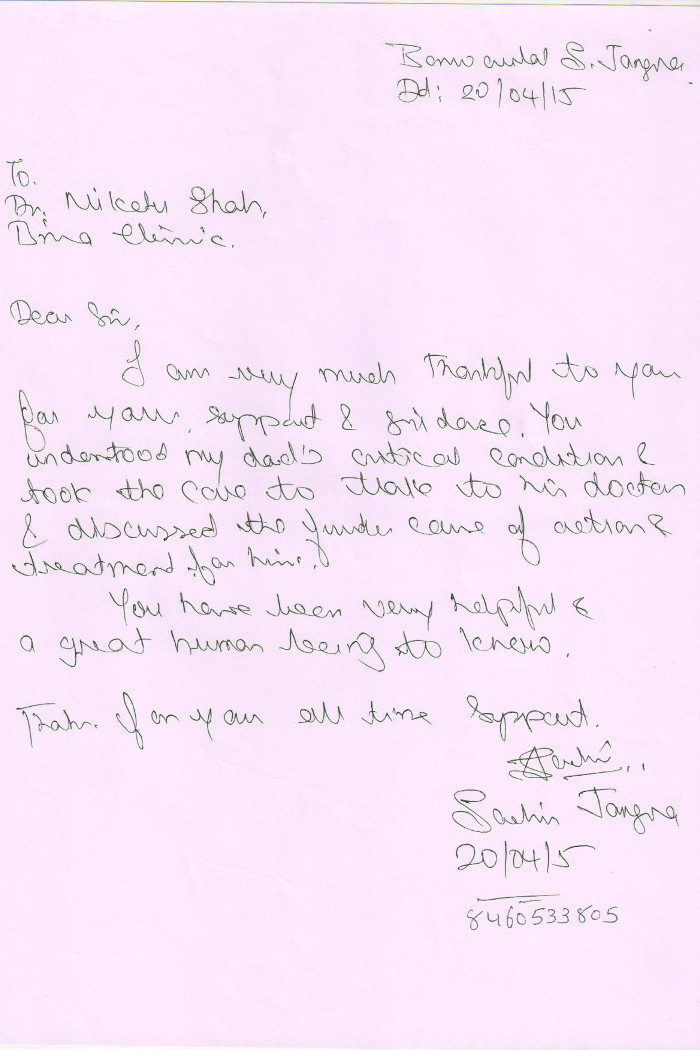 S. Jangra
Dd: 20/04/15
To.
Dr. Niketu Shah,
Bima Clinic.
Dear Sir,
I am very much Thankful to you
for your support & guidance. You
understood my dad's critical condition &
took the care to to his doctor
& discussed the further cause of action &
treatment for him.
You have been very helpful &
a great human being to know.
for your all time support.
Sachin Jangra
20/04/15
8460533805